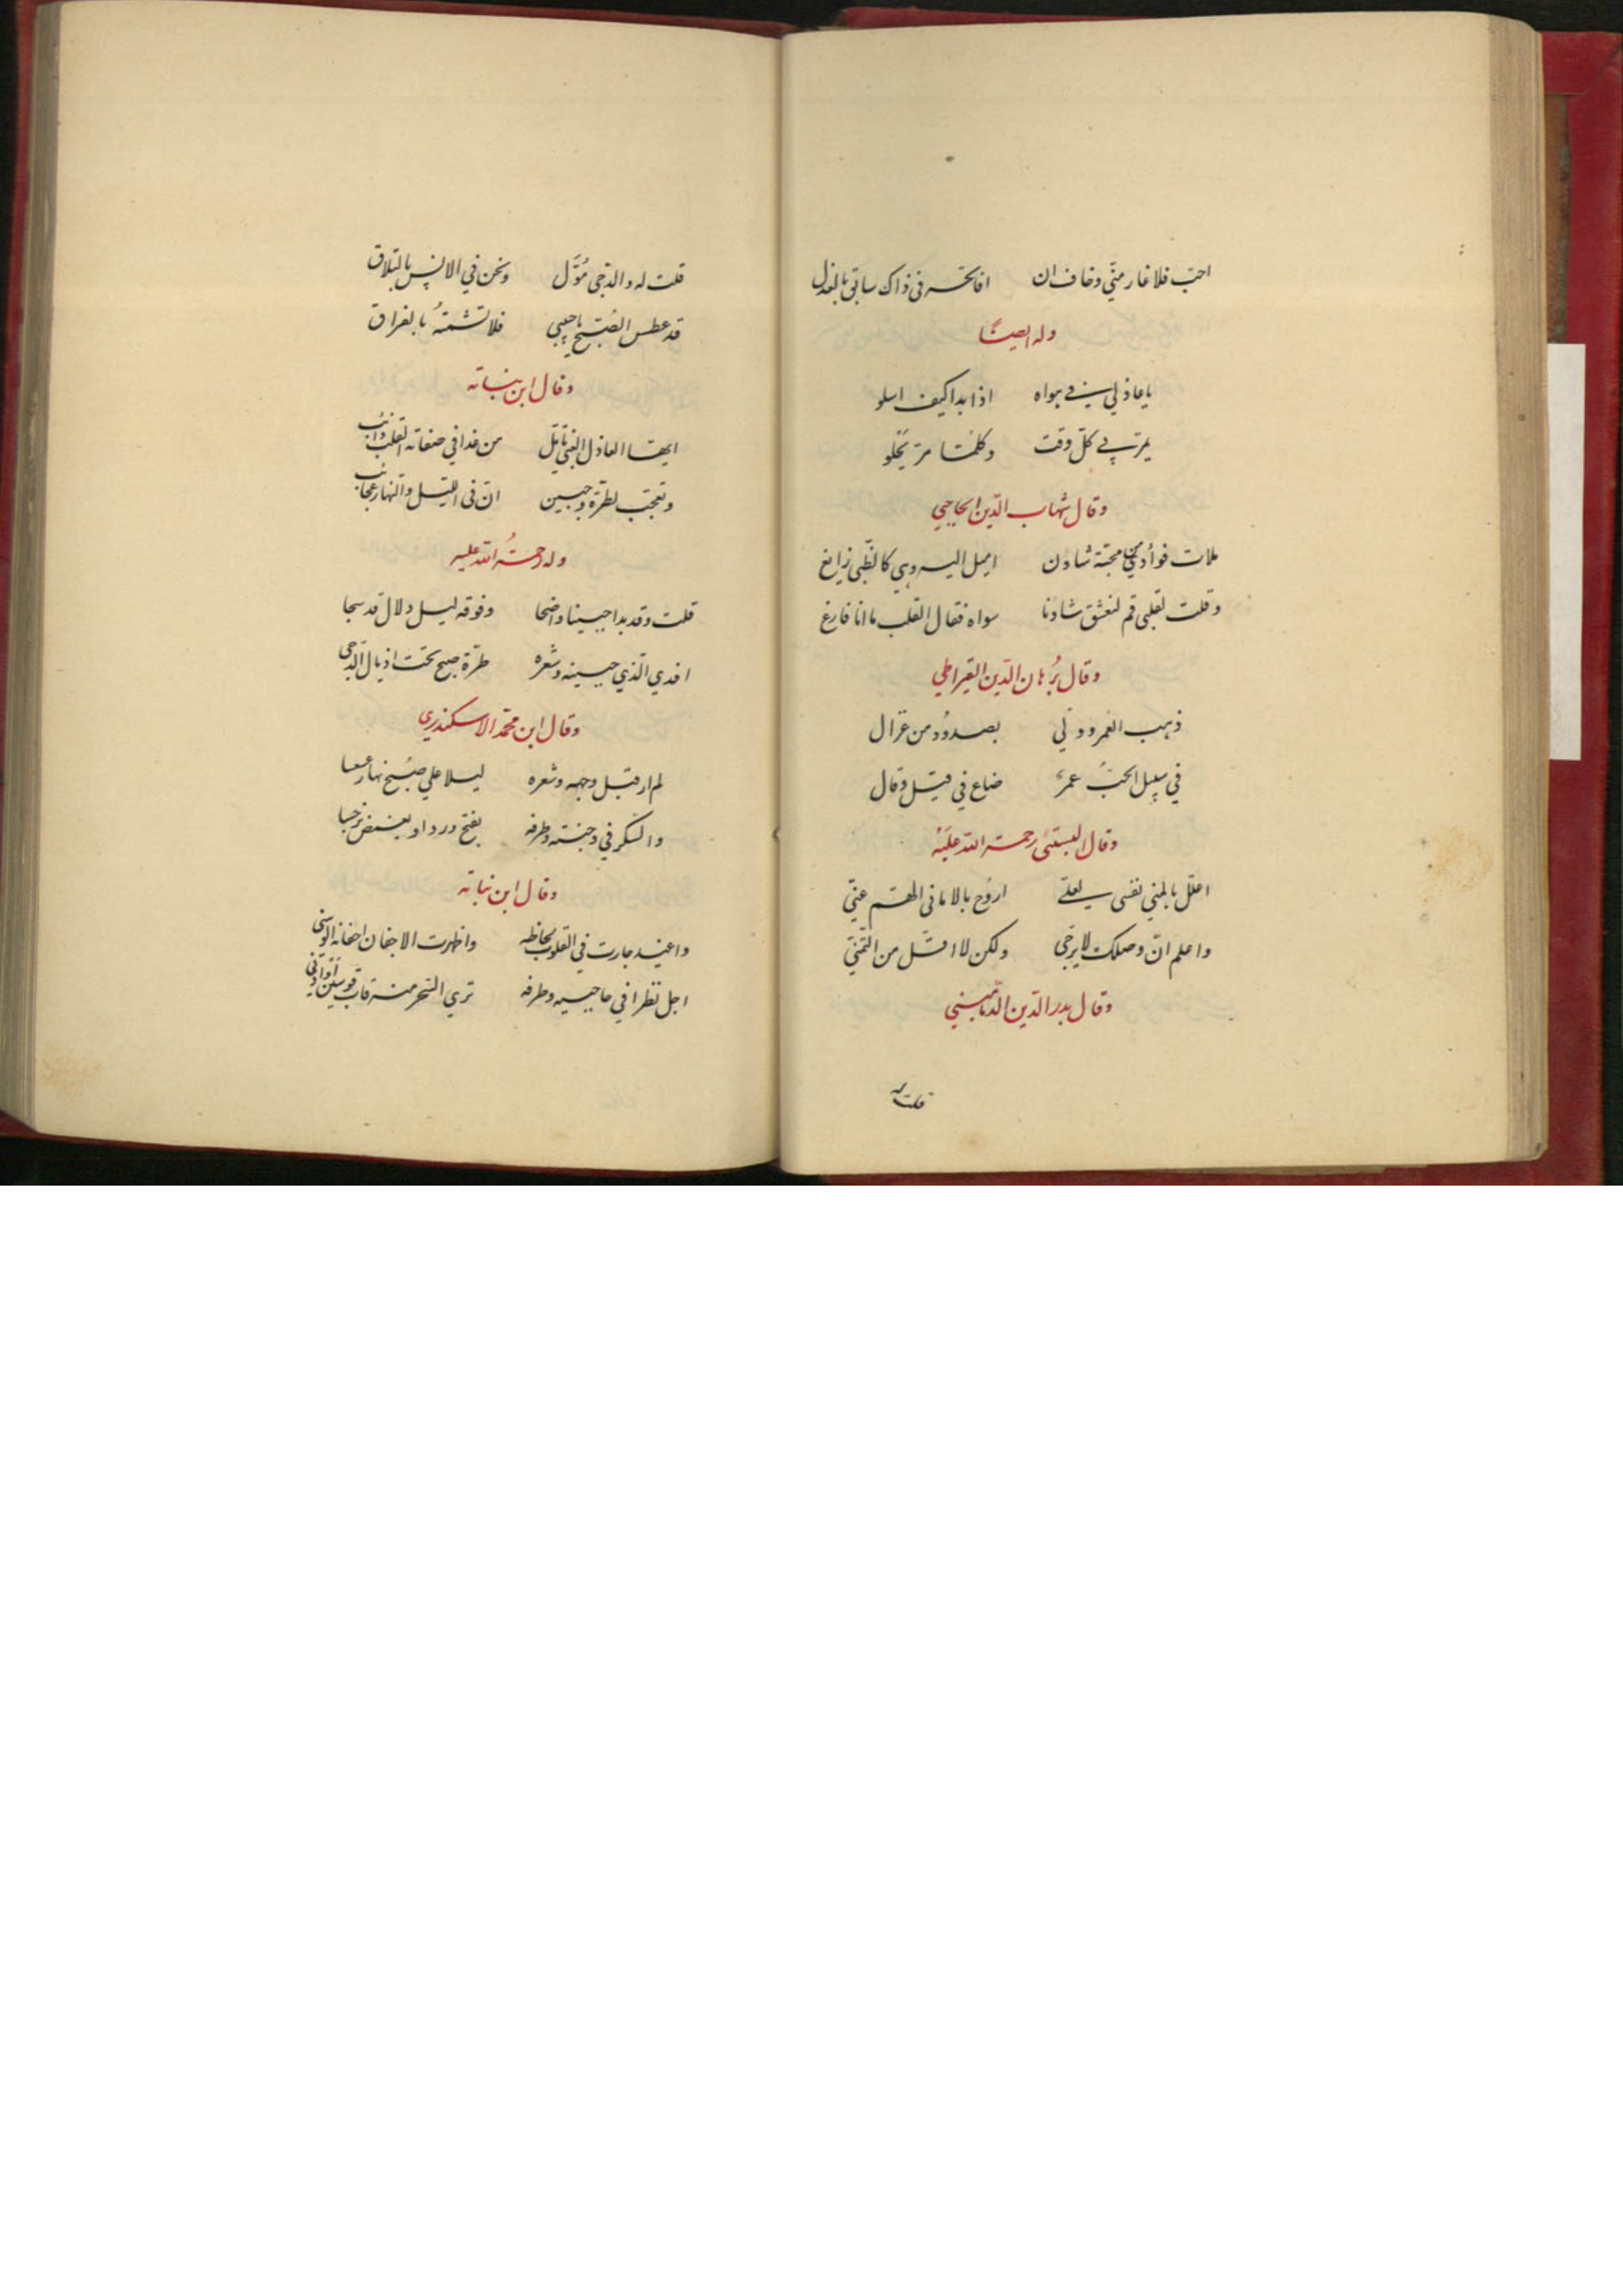 احبّ فلا غار منّي وخاف ان افاتحه في ذاك سابق بالعذل
وله ايضًا
يا عاذلي في هواه اذا بدا كيف اسلو
يمرّ بي كلّ وقت وكلّما مرّ يَحْلو
وقال شهاب الدّين الحاجبي
ملات فوأدي من محبّة شادن اميل اليه وهي كالظّبي زايغ
وقلت لقلبي قم لنعشق شادنا سواه فقال القلب ما انا فارغ
وقال بُرهان الدّين القيراطي
ذهب العمر وولي بصدوُد من غزال
في سبيل الحبّ عمرٌ ضاع في قيل وقال
وقال البستي رحمة الله عليه
اعلّل بالمني نفسي لعلّي اروّح بالاماني الهمّ عنّي
واعلم انّ وصلك لا يرجّي ولكن لا اقلّ من التّمنّي
وقال بدر الدّين الدّماميني
قلت له
قلت له والدّجي مُوَلّ ونحن في الانس بالتلاق
قد عطس الصّبح يا حبيبي فلا تشمته بالفراق
وقال ابن نباته
ايها العاذل الغبي تامّل من غدا في صفاته القلب ذائب
وتعجّب لطرّة وجبين انّ في الليل والنهار عجائب
وله رحمةُ الله عليه
قلت وقد بدا جبينا واضحا وفوقه ليل دلال قد سجا
افدي الّذي جبينه وشعره طرّة صبح تحت اذيال الدّجي
وقال ابن محمّد الاسكندري
لم ار قبل وجهه وشعره ليلا علي صُبح نهار عسعسا
والسّكر في وجنته وطرفه يفتح وردا ويغضّ نرجسا
وقال ابن نباته
واغيد جارت في القلوب لحاظه واظهرت الاجفان اجفانه الوسني
اجل نظرا في حاجبيه وطرفه تري السّحر منه قاب قوسين او ادني